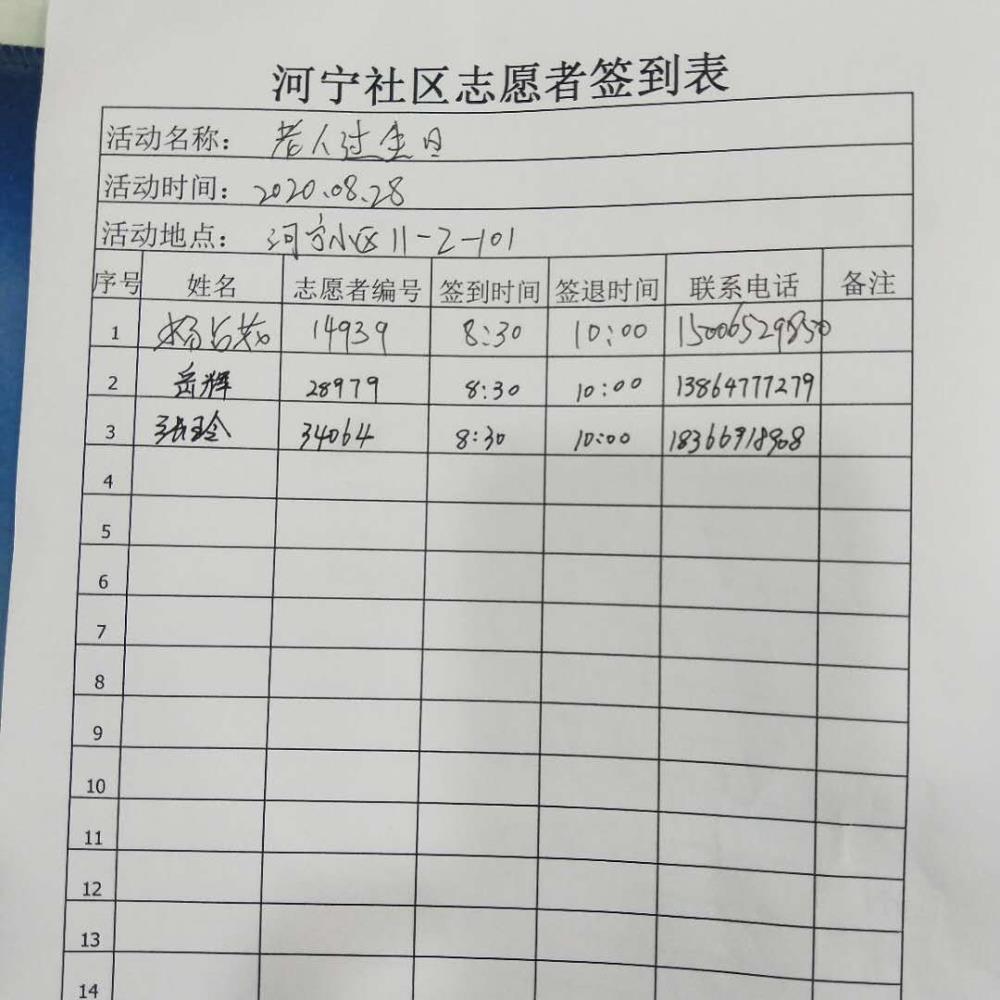 河宁社区志愿者签到表
活动名称: 老人过生日
活动时间: 2020.08.28
活动地点: 河宁小区11-2-101
序号 姓名 志愿者编号 签到时间 签退时间 联系电话 备注
1 14939 8:30 10:00 15006529850
2 岳辉 28979 8:30 10:00 13864777279
3 张玲 34064 8:30 10:00 18366918908
4
5
6
7
8
9
10
11
12
13
14